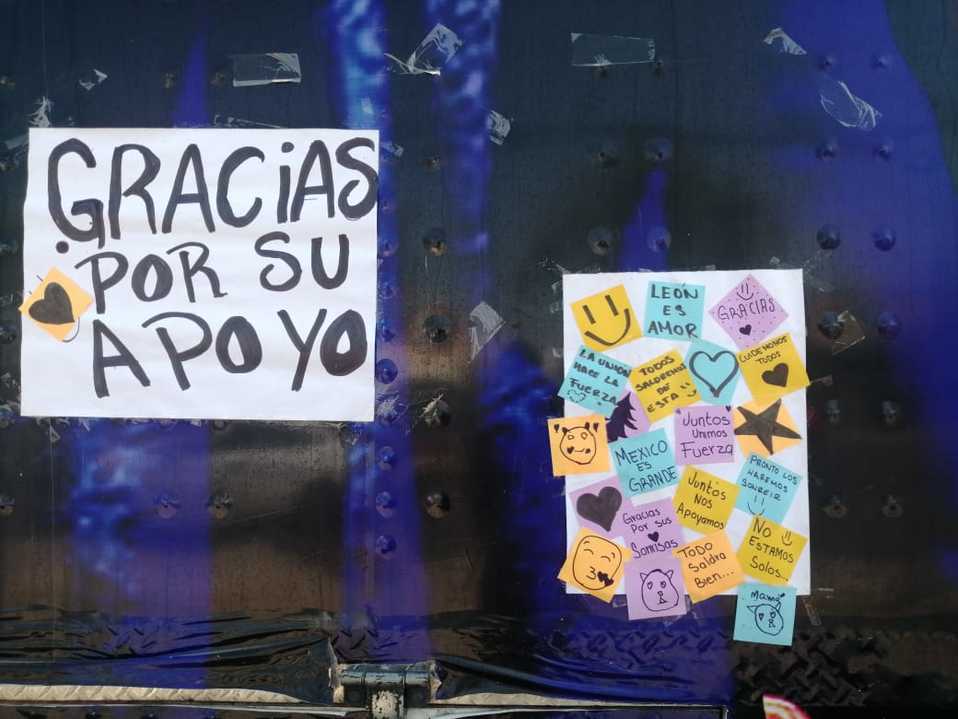 GRACiAS
POR SU
APOYO
LEON
ES
AMOR
GRACIAS
LA UNION
HACE LA
FUERZA
TODOS
SALDREMOS
DE
ESTA
CUIDEMONOS
TODOS
Juntos
Unimos
Fuerza
MEXICO
ES
GRANDE
PRONTO LOS
HAREMOS
SONREIR
Juntos
Nos
Apoyamos
Gracias
Por sus
Sonrisas
NO
ESTAMOS
Solos...
TODO
Saldra
Bien...
Mamá